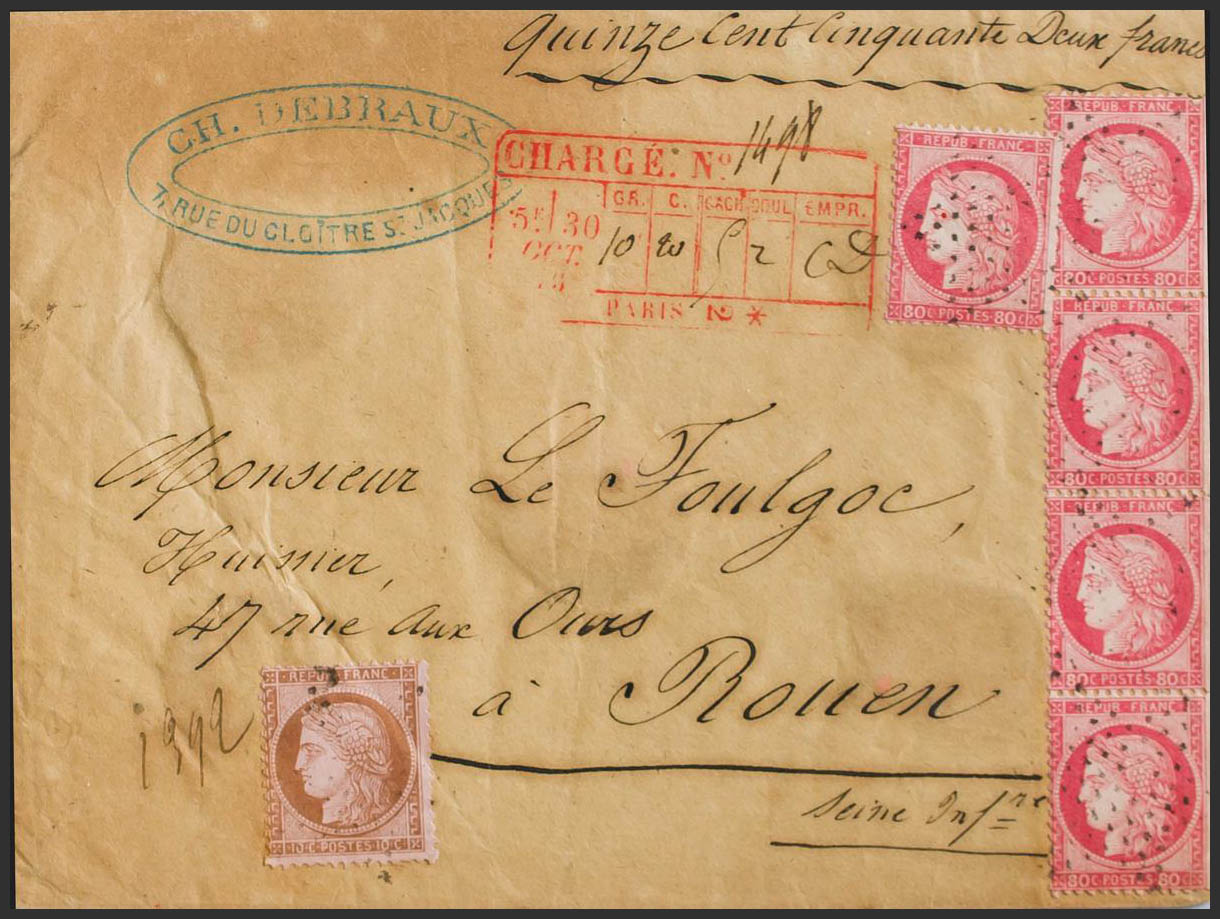 Quinze Cent Cinquante Deux francs
CH. DEBRAUX
7, RUE DU CLOÎTRE ST JACQUES
CHARGÉ. No 1498
GR. C. CACH. COUL EMPR.
5E 30
OCT.
10 20 5 2 CD
PARIS 12 *
REPUB. FRANC.
80C POSTES 80C
REPUB. FRANC.
80C POSTES 80C
REPUB. FRANC.
80C POSTES 80C
REPUB. FRANC.
80C POSTES 80C
REPUB. FRANC.
80C POSTES 80C
Monsieur Le Foulgoc,
Huissier,
47 rue aux Ours
à Rouen
Seine Infre
1392
REPUB. FRANC.
10C POSTES 10C